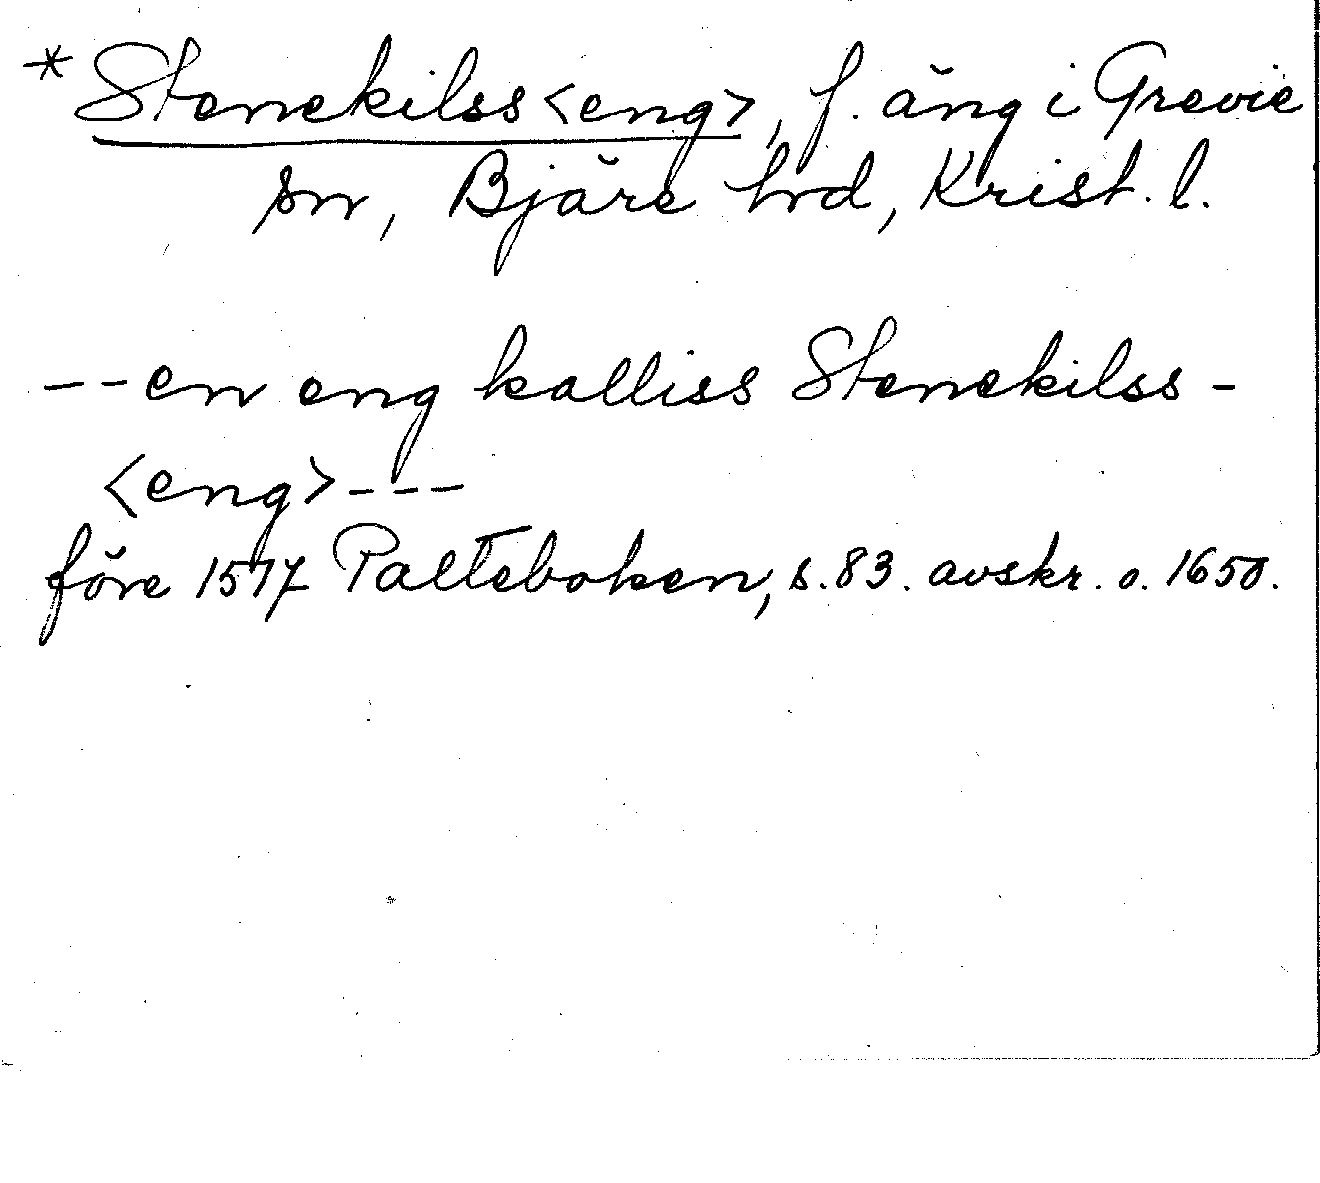 *Stenekilss<eng>, f. äng i Grevie
sn, Bjäre hrd, Krist. l.
--en eng kalliss Stenekilss-
<eng>---
före 1517 Palteboken, s. 83. avskr. o. 1650.